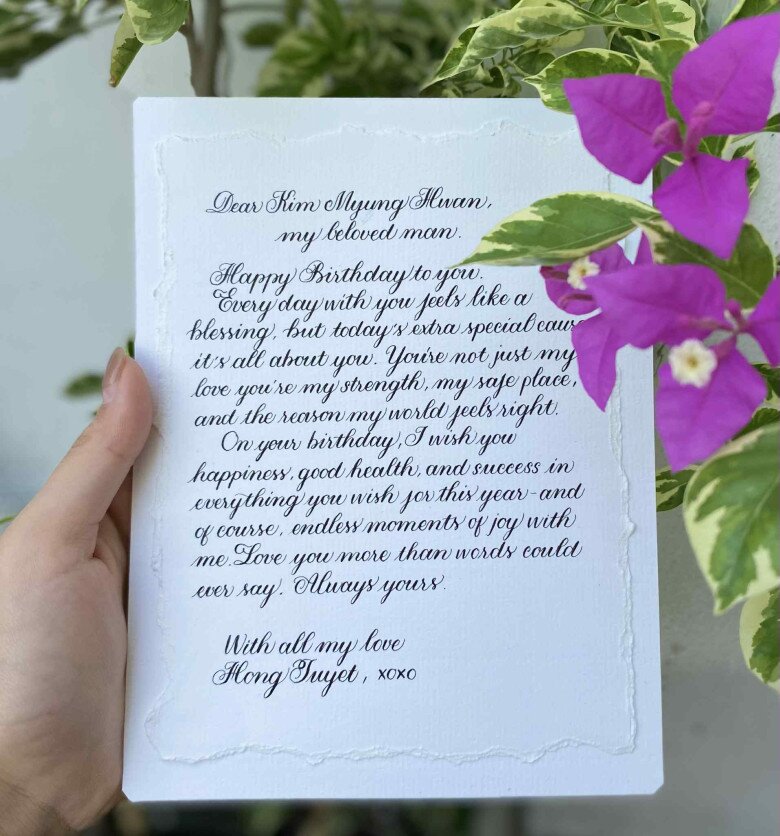 Dear Kim Myung Hwan,
my beloved man.
Happy Birthday to you.
Every day with you feels like a
blessing, but today's extra special cause
it's all about you. You're not just my
love you're my strength, my safe place,
and the reason my world feels right.
On your birthday, I wish you
happiness, good health, and success in
everything you wish for this year - and
of course, endless moments of joy with
me. Love you more than words could
ever say. Always yours.
With all my love
Hong Tuyet, xoxo